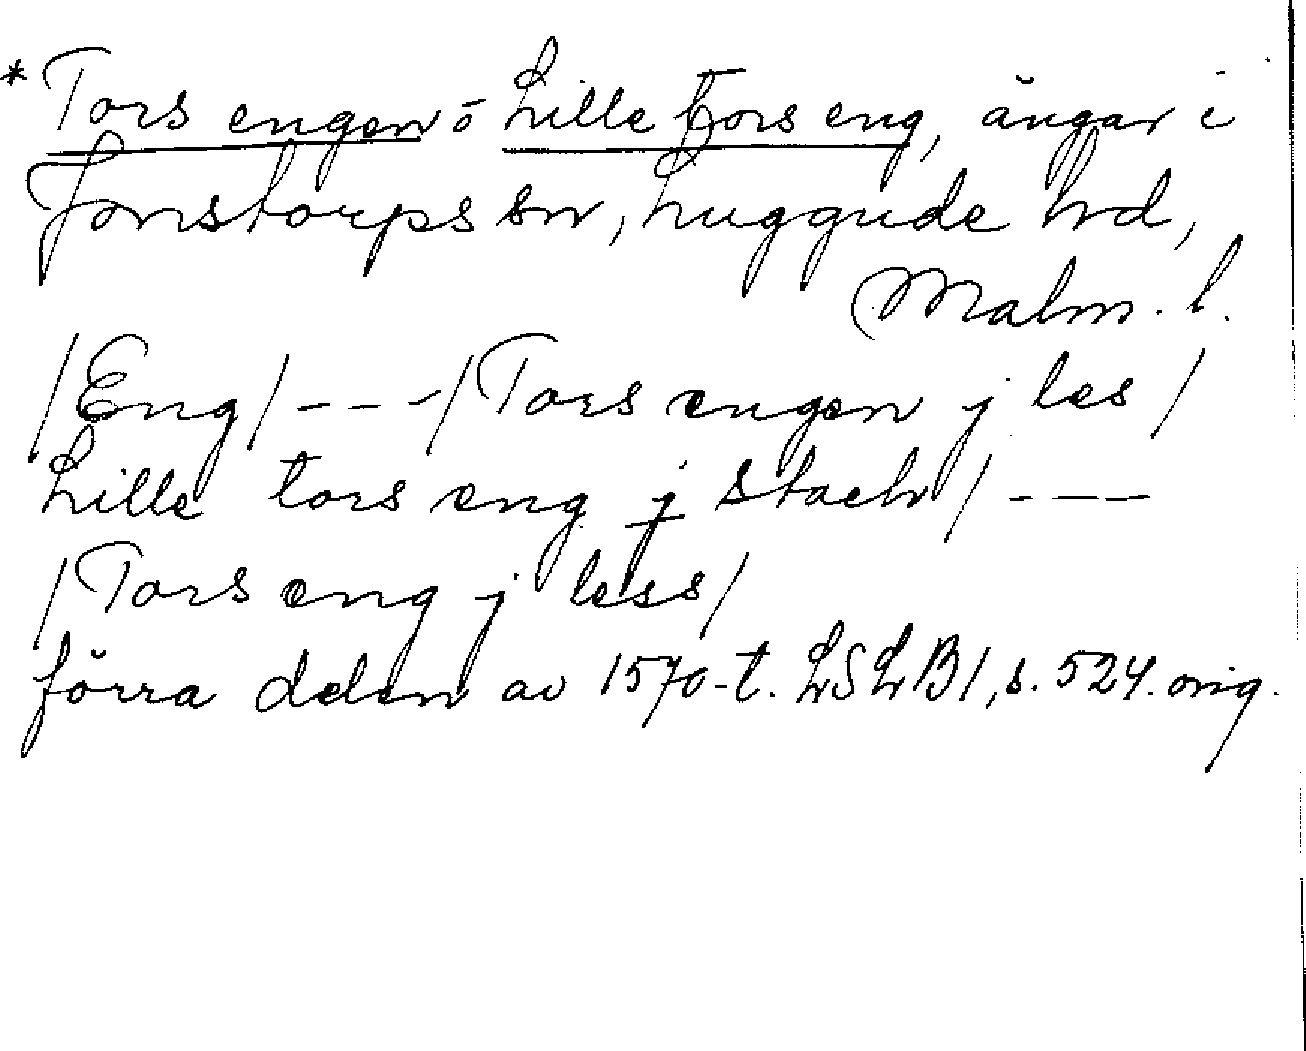 * Tors engen o Lille tors eng, ängar i
Jonstorps sn, Luggude hd,
Malm. l.
/Eng/---/Tors engen j les/
Lille tors eng j stach/---
/Tors eng j less/
förra delen av 1570-t. LSLB1, s. 524. orig.